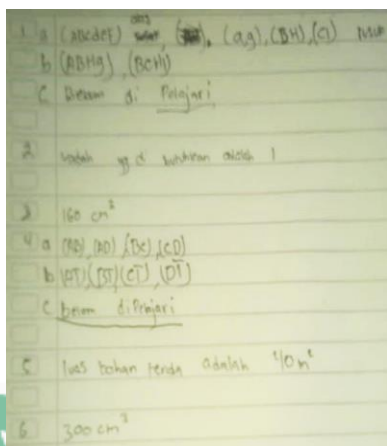 1 a (ABCDEF) (a,g), (BH), (CI)
b (ABHg), (BCHI)
C Belum di Pelajari
2 wadah yg di butuhkan adalah 1
3 160 cm³
4 a (AB), (AD), (BC), (CD)
b (AT) (BT) (CT), (DT)
C belum diPelajari
5 luas bahan tenda adalah 40 m²
6 300 cm³